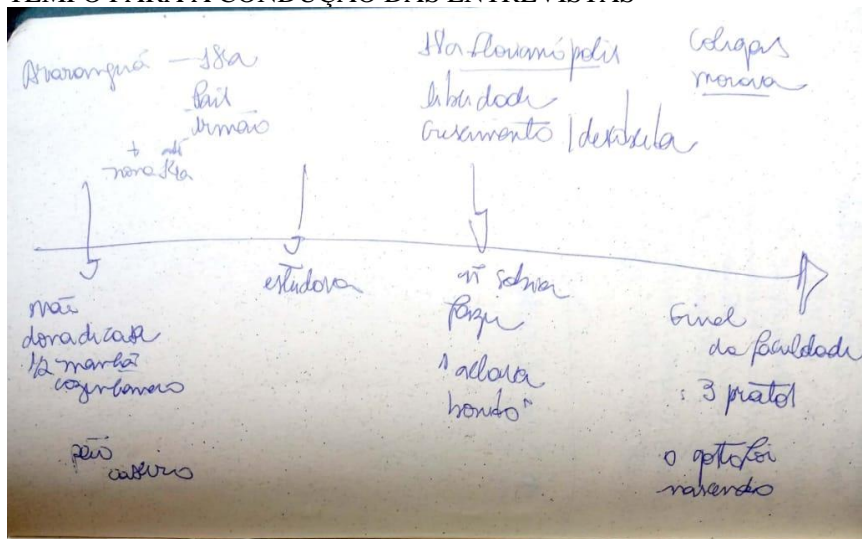 TEMPO PARA A CONDUÇÃO DAS ENTREVISTAS
Araranguá — 18a
Pais
irmão
+ até
18a Florianópolis
liberdade
crescimento / descoberta
Colegas
morava
mãe
dona de casa
1/2 manhã
cozinhando
pão
caseiro
estudava
ñ sabia
fazer
achava
bonito"
Final
da faculdade
: 3 pratos
o gosto foi
nascendo